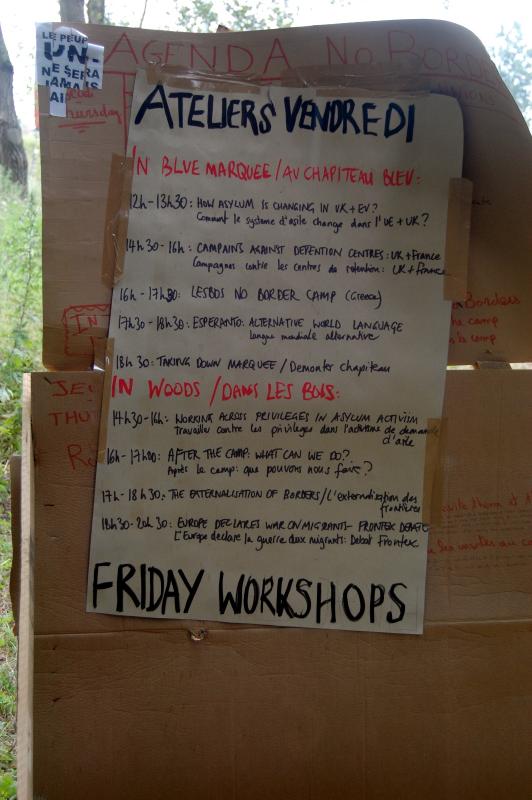 LE PEUP
UNI
NE SERA
JAMAIS
AGENDA No BORD
Thursday
ATELIERS VENDREDI
IN BLUE MARQUEE / AU CHAPITEAU BLEU:
12h-13h30: HOW ASYLUM IS CHANGING IN UK + EU?
Comment le systeme d'asile change dans l'UE + UK?
14h30-16h: CAMPAINS AGAINST DETENTION CENTRES: UK + France
Campagnes contre les centres de retention: UK + France
16h-17h30: LESBOS NO BORDER CAMP (Greece)
17h30-18h30: ESPERANTO: ALTERNATIVE WORLD LANGUAGE
langue mondiale alternative
18h30: TAKING DOWN MARQUEE / Demonter chapiteau
IN WOODS / DANS LES BOIS:
14h30-16h: WORKING ACROSS PRIVILEGES IN ASYLUM ACTIVISM
Travailler contre les privileges dans l'activisme de demande
d'asile
16h-17h00: AFTER THE CAMP: WHAT CAN WE DO?
Après le camp: que pouvons nous faire?
17h-18h30: THE EXTERNALISATION OF BORDERS / L'externalisation des
frontières
18h30-20h30: EUROPE DECLARES WAR ON MIGRANTS- FRONTEX DEBATE
L'Europe declare la guerre aux migrants: Debat Frontex
FRIDAY WORKSHOPS
Borders
camp
camp
IN
JE
THU